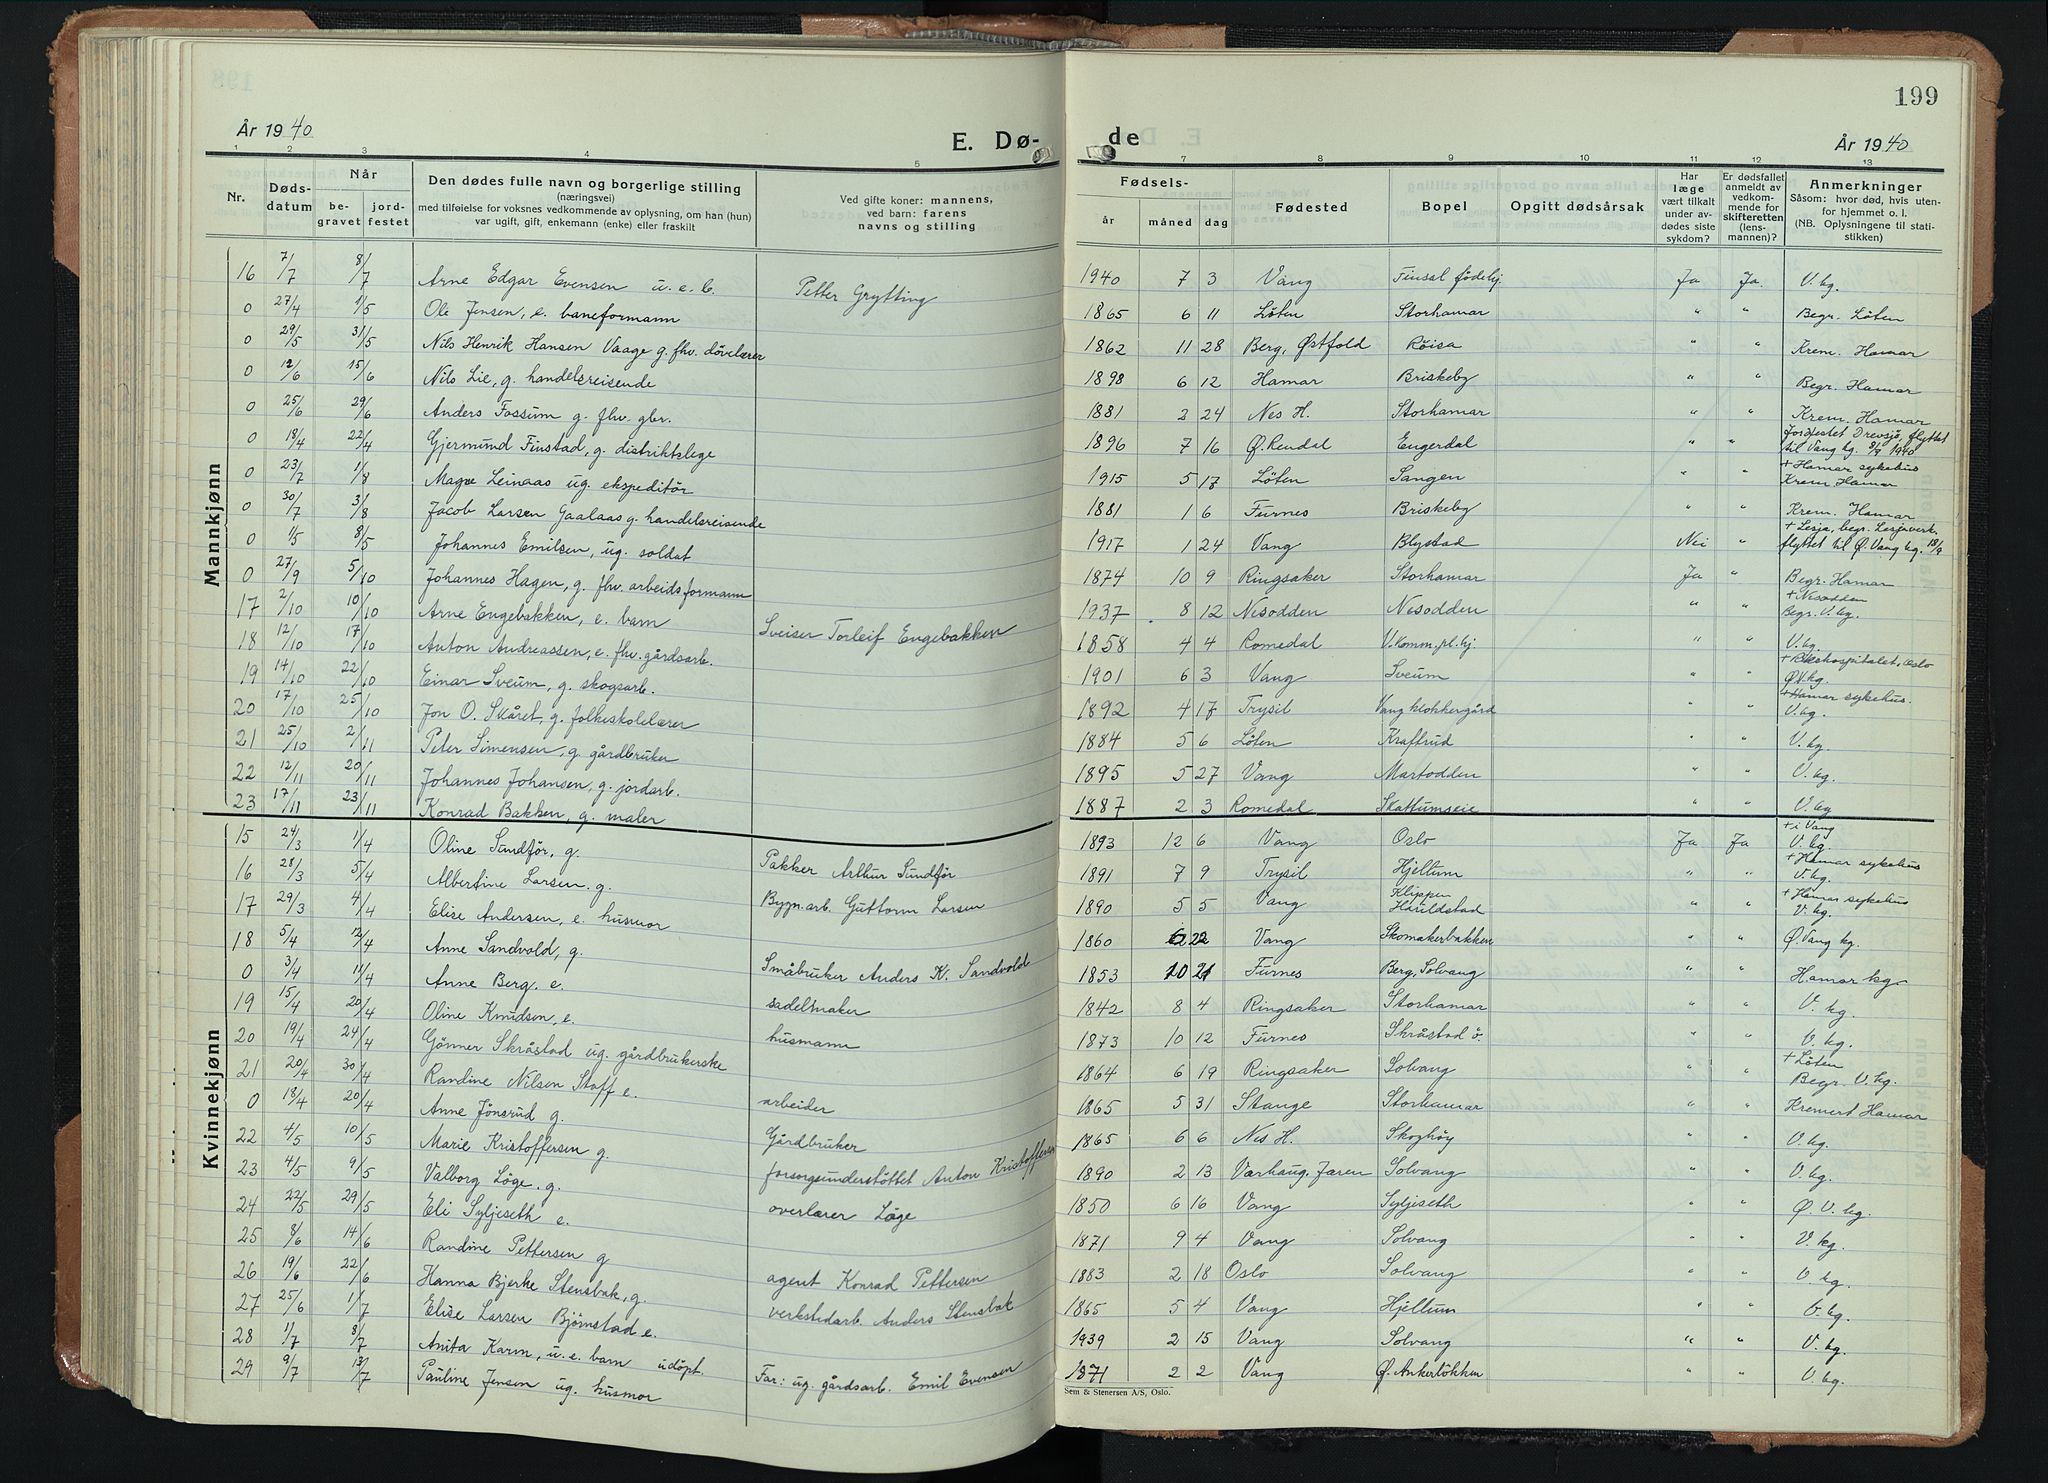 199
År 1940
E. Dø-
de
År 1940
1 2 3 4 5 7 8 9 10 11 12 13
Nr.
Døds-
datum
Når
be-
gravet
jord-
festet
Den dødes fulle navn og borgerlige stilling
(næringsvei)
med tilføielse for voksnes vedkommende av oplysning, om han (hun)
var ugift, gift, enkemann (enke) eller fraskilt
Ved gifte koner: mannens,
ved barn: farens
navns og stilling
Fødsels-
år måned dag
Fødested
Bopel
Opgitt dødsårsak
Har
læge
vært tilkalt
under av-
dødes siste
sykdom?
Er dødsfallet
anmeldt av
vedkom-
mende for
skifteretten
(lens-
mannen)?
Anmerkninger
Såsom: hvor død, hvis uten-
for hjemmet o. l.
(NB. Oplysningene til stati-
stikken)
Mannkjønn
16 7/7 8/7 Arne Edgar Evensen u. e. b. Petter Grytting 1940 7 3 Vang Finsal fødehj. Ja Ja. V. kg.
0 27/4 1/5 Ole Jensen, e. baneformann 1865 6 11 Löten Storhamar " " Begr. Löten
0 29/5 31/5 Nils Henrik Hansen Vaage g. fhv. døvelærer 1862 11 28 Berg, Østfold Röisa " " Krem. Hamar
0 12/6 15/6 Nils Lie, g. handelsreisende 1898 6 12 Hamar Briskeby " " Begr. Hamar
0 25/6 29/6 Anders Fossum g. fhv. gbr. 1881 2 24 Nes H. Storhamar " " Krem. Hamar
0 18/4 22/4 Gjermund Finstad, g. distriktslege 1896 7 16 Ø. Rendal Engerdal " " Jordfestet Drevsjø, flyttet
til Vang kg. 9/9 1940
0 23/7 1/8 Magne Leinaas ug. ekspeditör 1915 5 17 Löten Sangen " " + Hamar sykehus
Krem. Hamar
0 30/7 3/8 Jacob Larsen Gaalaas g. handelsreisende 1881 1 6 Furnes Briskeby " " Krem. Hamar
0 1/5 8/5 Johannes Emilsen, ug. soldat 1917 1 24 Vang Blystad Nei " + Lesja, begr. Lesjaverk.
flyttet til Ø. Vang kg. 18/9
0 27/9 5/10 Johannes Hagen, g. fhv. arbeidsformann 1874 10 9 Ringsaker Storhamar Ja " Begr. Hamar
17 2/10 10/10 Arne Engebakken, e. barn Sveiser Torleif Engebakken 1937 8 12 Nesodden Nesodden " " + Nesodden
Begr. V. kg.
18 12/10 17/10 Anton Andreassen, e. fhv. gårdsarb. 1858 4 4 Romedal V. komm. pl. hj. " " V. kg.
19 14/10 22/10 Einar Sveum, g. skogsarb. 1901 6 3 Vang Sveum " " Oslo
Ø V. kg.
20 17/10 25/10 Jon O. Skåret, g. folkeskolelærer 1892 4 17 Trysil Vang klokkergård " " + Hamar sykehus.
V. kg.
21 25/10 2/11 Peter Simensen, g. gårdbruker 1884 5 6 Löten Kraftrud " " V. kg
22 12/11 20/11 Johannes Johansen, g. jordarb. 1895 5 27 Vang Martodden " " V. kg.
23 17/11 23/11 Konrad Bakken, g. maler 1887 2 3 Romedal Skattumseie " " V. kg
Kvinnekjønn
15 24/3 1/4 Oline Sundför, g. Pakker Arthur Sundför 1893 12 6 Vang Oslo Ja Ja + i Vang
V. kg.
16 28/3 5/4 Albertine Larsen, g. Bygn. arb. Guttorm Larsen 1891 7 9 Trysil Hjellum " " + Hamar sykehus
V. kg.
17 29/3 4/4 Elise Andersen, e. husmor 1890 5 5 Vang Klippen
Haruldstad " " + Hamar sykehus
V. kg.
18 5/4 12/4 Anne Sandvold, g. Småbruker Anders K. Sandvold 1860 22 Vang Skomakerbakken " " Ø. Vang kg.
0 3/4 11/4 Anne Berg. e. sadelmaker 1853 10 21 Furnes Berg, Solvang " " Hamar kg.
19 15/4 20/4 Oline Knudsen, e. husmann 1842 8 4 Ringsaker Storhamar " " V. kg.
20 19/4 24/4 Gönner Skråstad ug. gårdbrukerske 1873 10 12 Furnes Skråstad ö. " " V. kg.
21 20/4 30/4 Randine Nilsen Stoff e. arbeider 1864 6 19 Ringsaker Solvang " " + Löten
Begr. V. kg.
0 18/4 20/4 Anne Jönsrud g. Gårdbruker 1865 5 31 Stange Storhamar " " Kremert Hamar
22 4/5 10/5 Marie Kristoffersen g. forsorgsunderstöttet Anton Kristoffersen 1865 6 6 Nes H. Skoghöy " " V. kg.
23 4/5 9/5 Valborg Löge. g. overlærer Löge 1890 2 13 Varhaug, Jæren Solvang " " V. kg.
24 22/5 29/5 Eli Syljeseth e. 1850 6 16 Vang Syljeseth " " Ø. V. kg.
25 8/6 14/6 Randine Pettersen g agent Konrad Pettersen 1871 9 4 Vang Solvang " " V. kg.
26 19/6 22/6 Hanna Bjerke Stensbak, g. verkstedarb. Anders Stensbak 1883 2 18 Oslo Solvang " " V. kg.
27 25/6 1/7 Elise Larsen Bjørnstad e. 1865 5 4 Vang Hjellum " " V. kg.
28 1/7 8/7 Anita Karin, u. e. barn udöpt. Far: ug. gårdsarb. Emil Evensen 1939 2 15 Vang Solvang " " V. kg.
29 9/7 13/7 Pauline Jensen ug. husmor 1871 2 2 Vang Ø. Ankerlökken " " V. kg.
Sem & Stenersen A/S, Oslo.